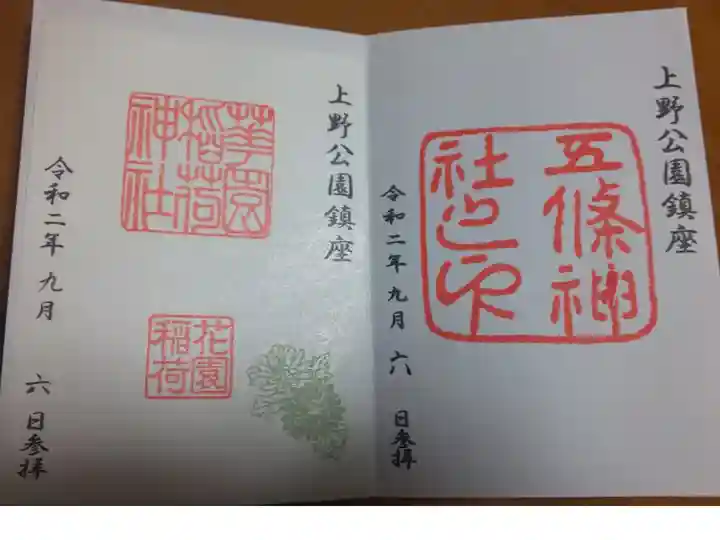 上野公園鎮座
五條神
社之印
令和二年九月 六 日参拝
上野公園鎮座
華園
稲荷
神社
花園
稲荷
令和二年九月 六 日参拝